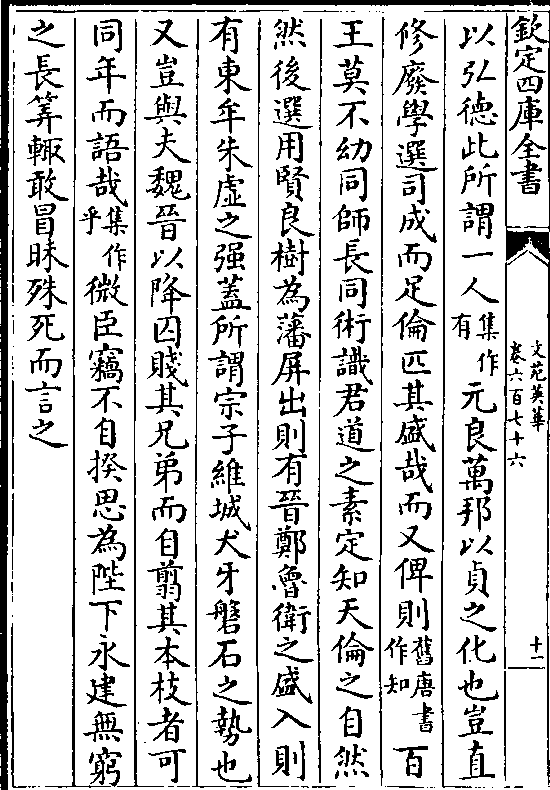 欽定四庫全書
文苑英華
卷六百七十六
十一
以弘德此所謂一人集作有元良萬邦以貞之化也豈直
修廢學選司成而足倫匹其盛哉而又俾則舊唐書作知百
王莫不幼同師長同術識君道之素定知天倫之自然
然後選用賢良樹為藩屏出則有晉鄭魯衛之盛入則
有東牟朱虛之强蓋所謂宗子維城犬牙磐石之勢也
又豈與夫魏晉以降囚賤其兄弟而自翦其本枝者可
同年而語哉集作乎微臣竊不自揆思為陛下永建無窮
之長筭輙敢冒昧殊死而言之